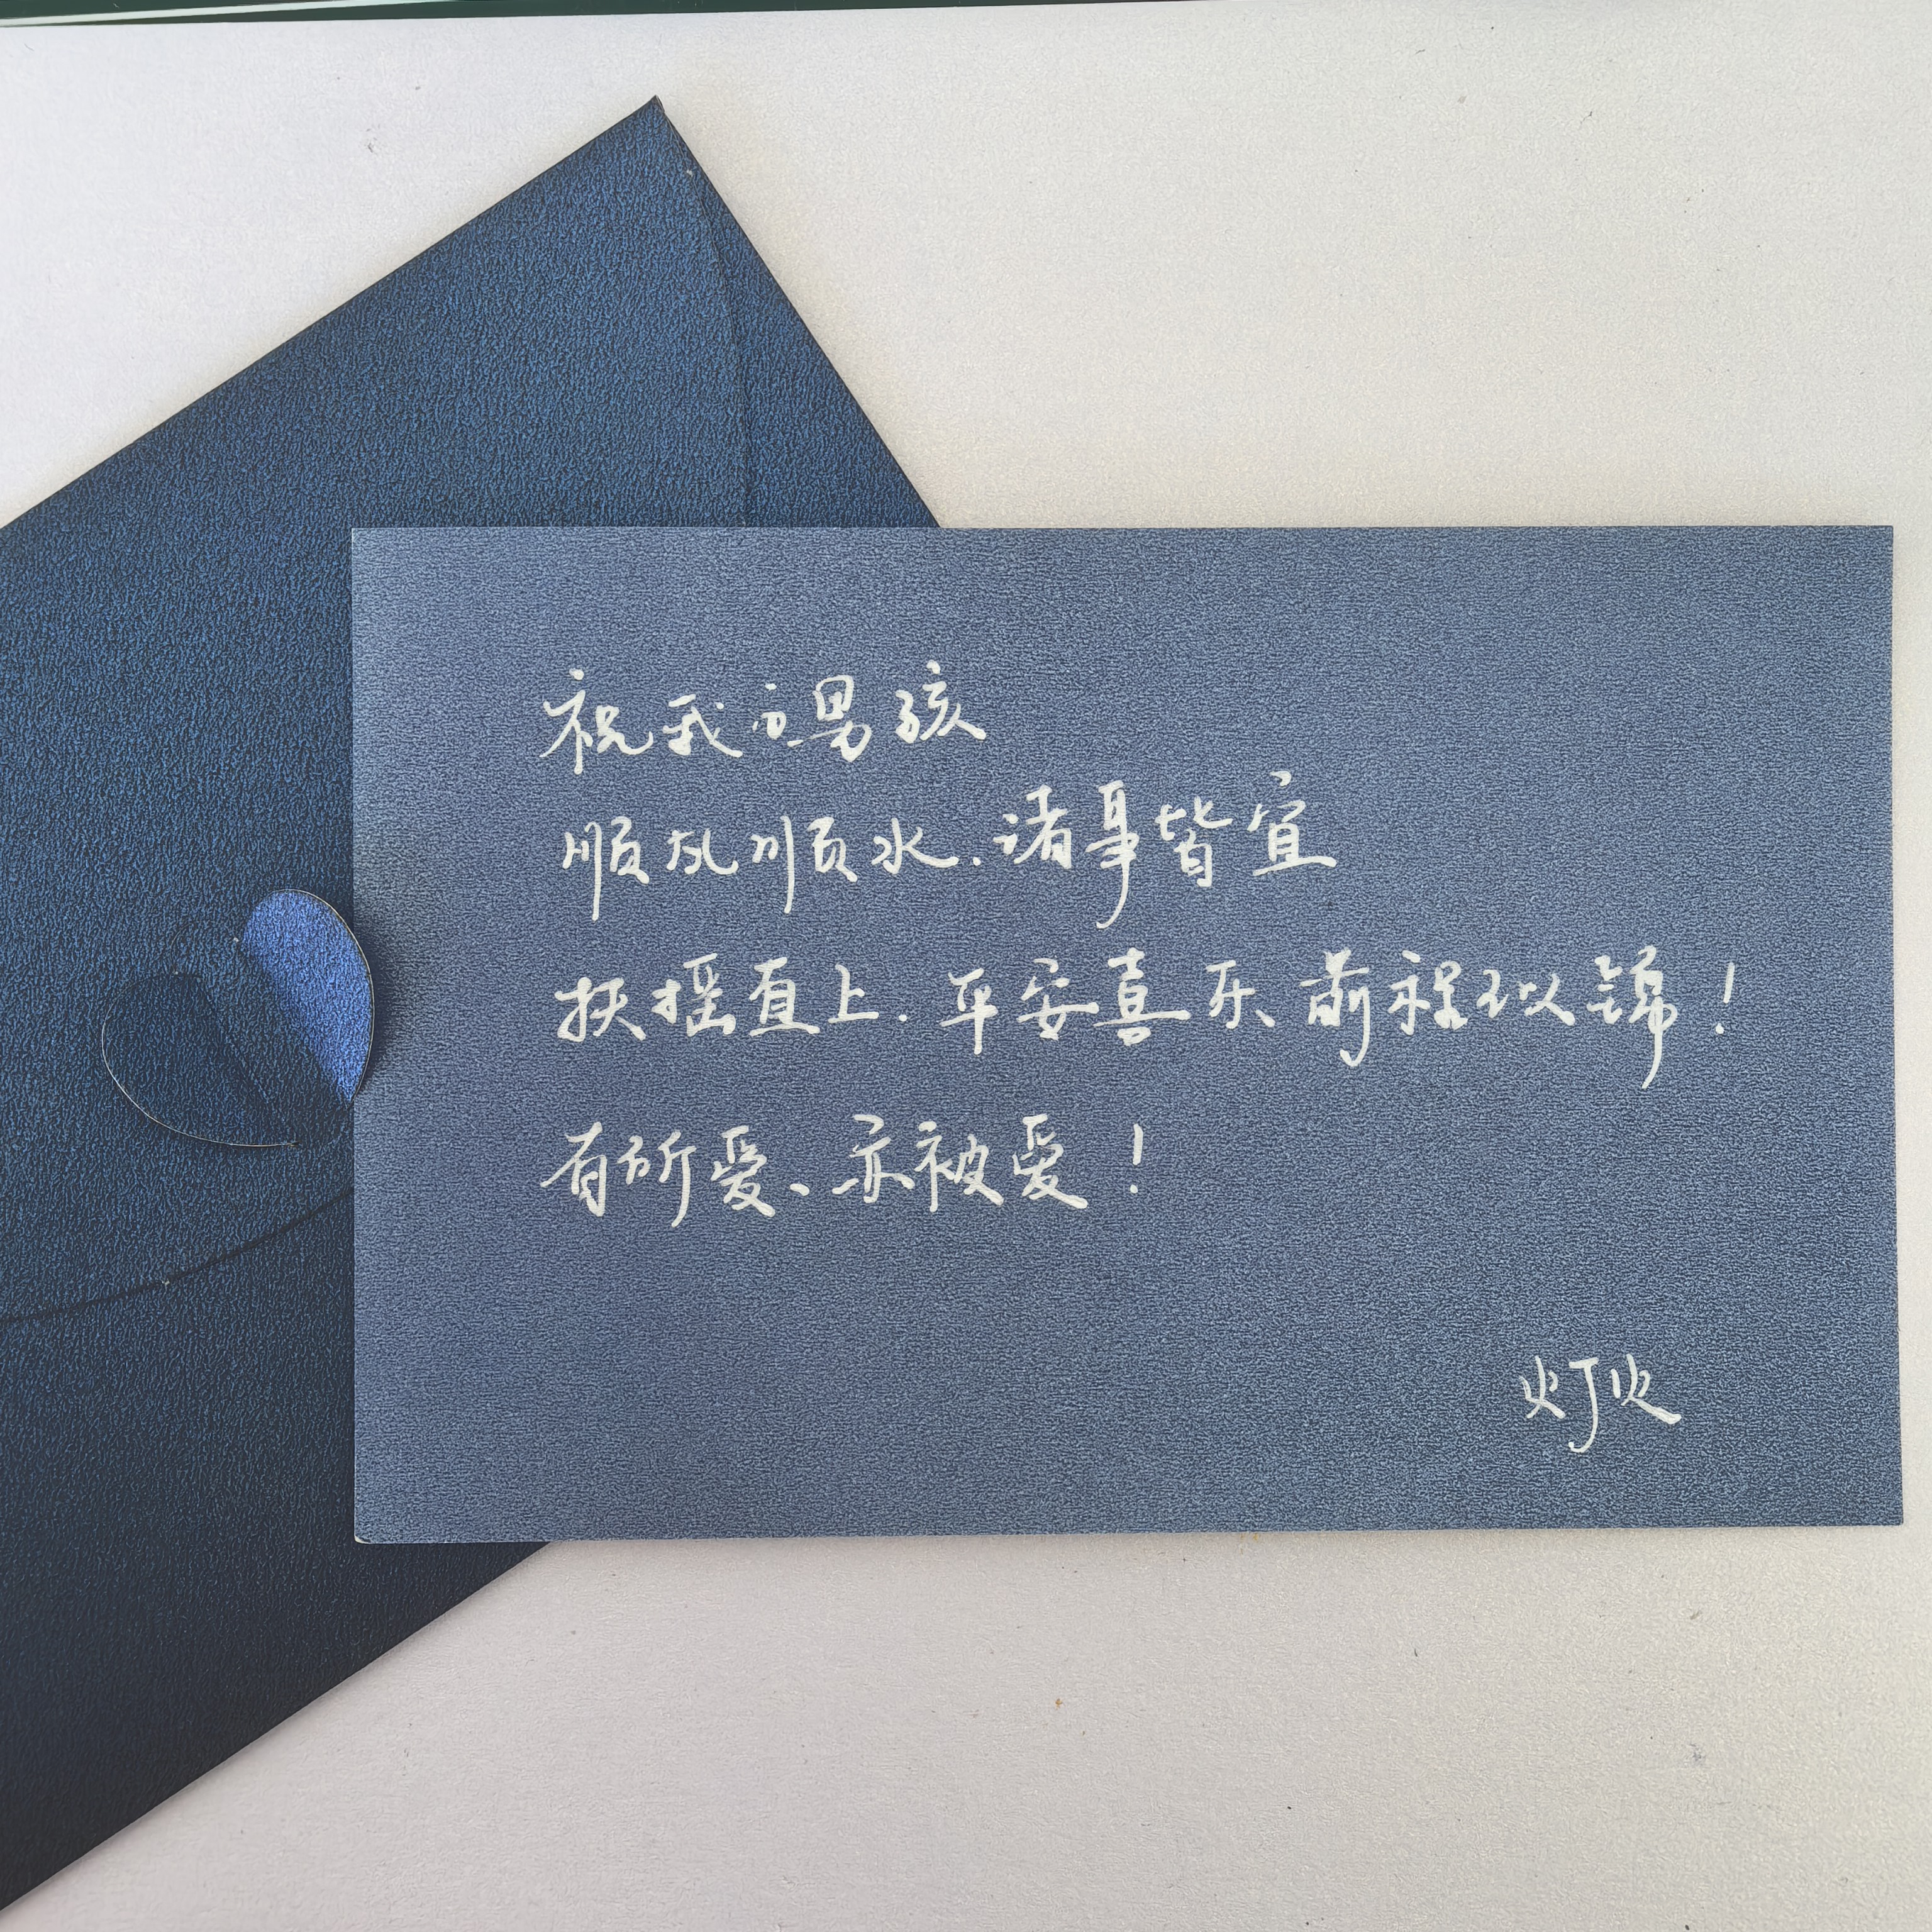 祝我的男孩
顺风顺水.诸事皆宜
扶摇直上.平安喜乐 前程似锦!
有所爱、亦被爱!
灯火